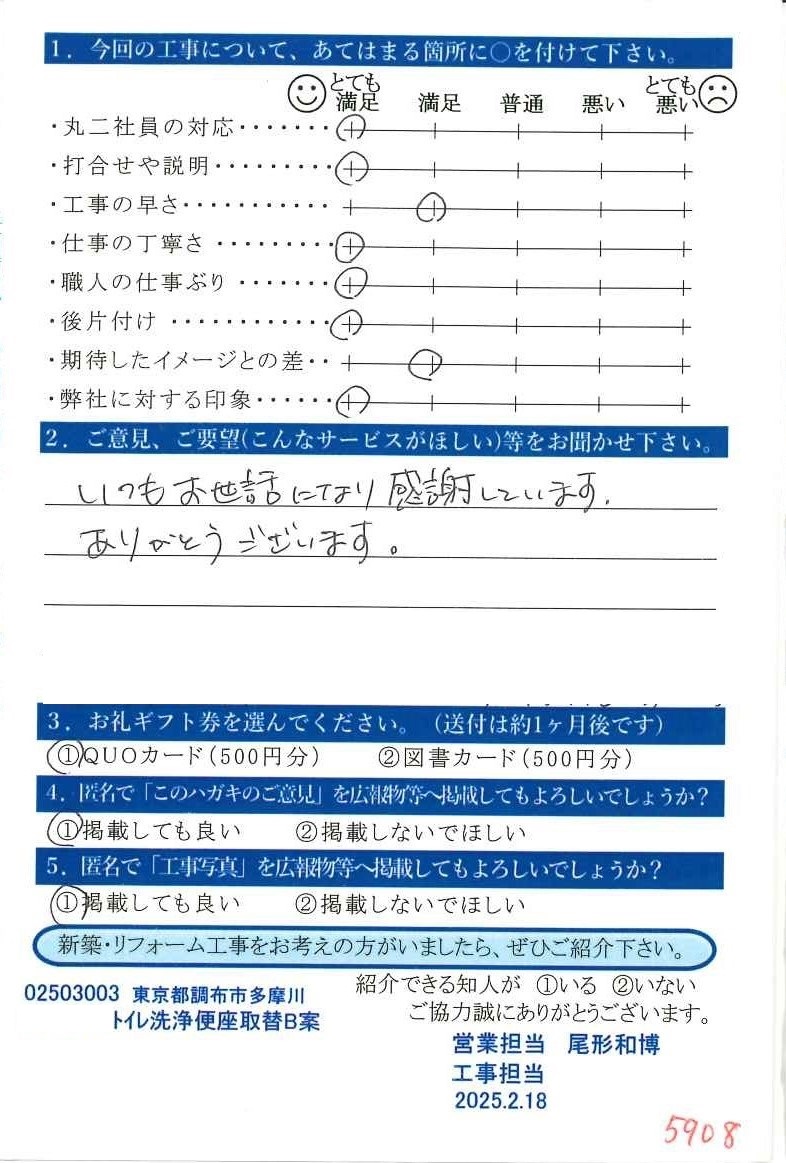 1．今回の工事について、あてはまる箇所に○を付けて下さい。
とても満足 満足 普通 悪い とても悪い
・丸二社員の対応・・・・・・・
・打合せや説明・・・・・・・・・
・工事の早さ・・・・・・・・・・・
・仕事の丁寧さ ・・・・・・・・・
・職人の仕事ぶり ・・・・・・・・
・後片付け ・・・・・・・・・・・・
・期待したイメージとの差・・
・弊社に対する印象・・・・・・
2．ご意見、ご要望(こんなサービスがほしい)等をお聞かせ下さい。
いつもお世話になり感謝しています。
ありがとうございます。
3．お礼ギフト券を選んでください。（送付は約1ヶ月後です）
①QUOカード（500円分） ②図書カード（500円分）
4．匿名で「このハガキのご意見」を広報物等へ掲載してもよろしいでしょうか？
①掲載しても良い ②掲載しないでほしい
5．匿名で「工事写真」を広報物等へ掲載してもよろしいでしょうか？
①掲載しても良い ②掲載しないでほしい
新築・リフォーム工事をお考えの方がいましたら、ぜひご紹介下さい。
紹介できる知人が ①いる ②いない
ご協力誠にありがとうございます。
02503003 東京都調布市多摩川
トイレ洗浄便座取替B案
営業担当 尾形和博
工事担当
2025.2.18
5908